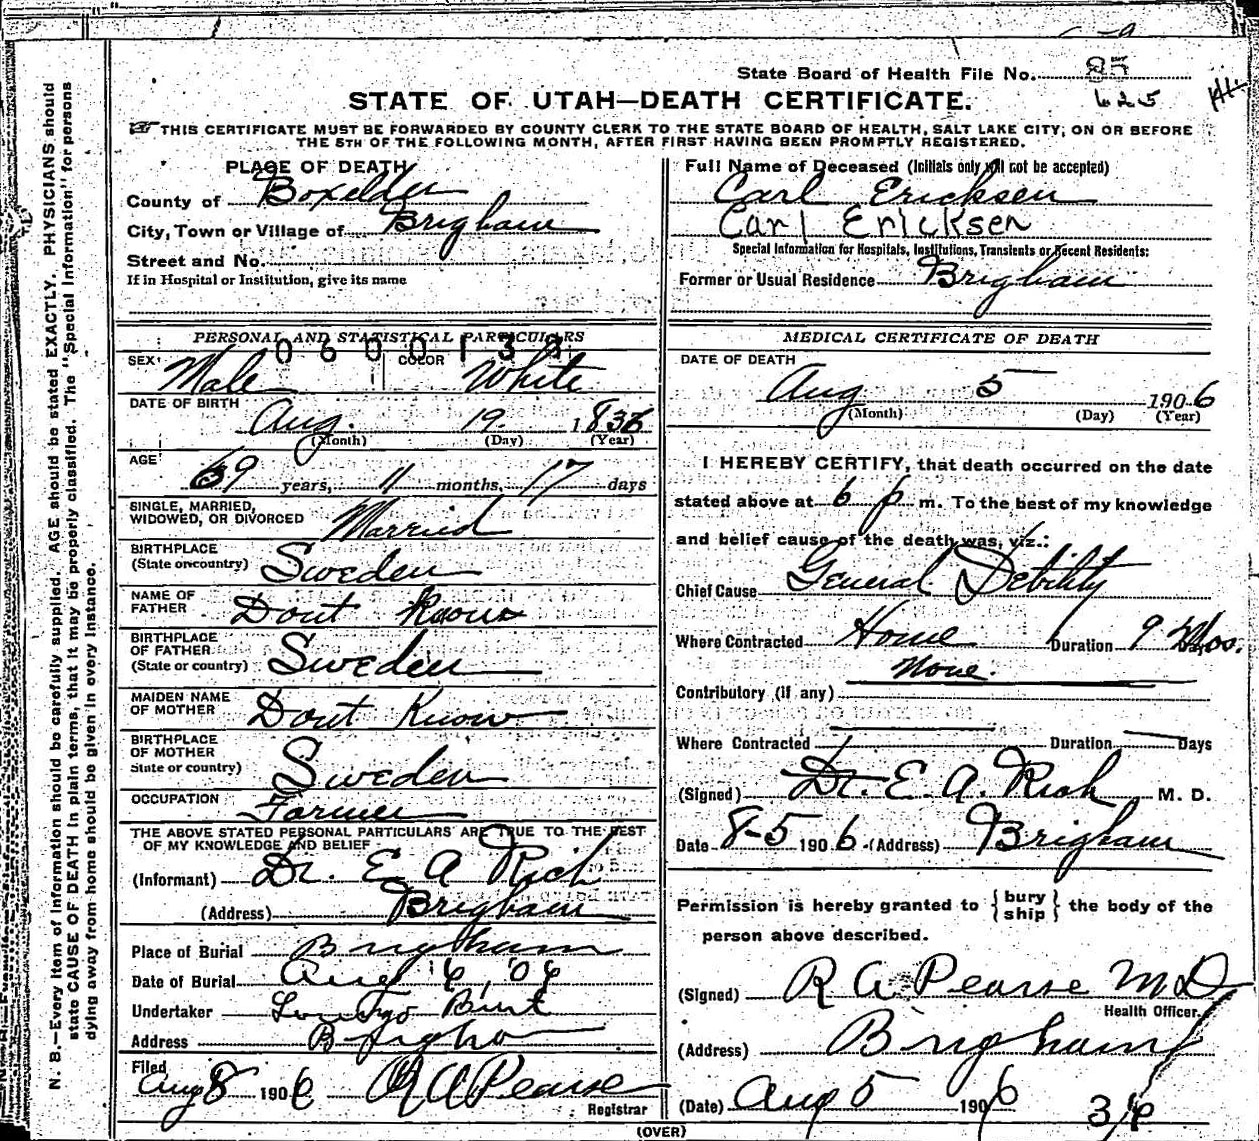 State Board of Health File No. 85
625
STATE OF UTAH—DEATH CERTIFICATE.
THIS CERTIFICATE MUST BE FORWARDED BY COUNTY CLERK TO THE STATE BOARD OF HEALTH, SALT LAKE CITY, ON OR BEFORE
THE 5TH OF THE FOLLOWING MONTH, AFTER FIRST HAVING BEEN PROMPTLY REGISTERED.
N. B.—Every item of information should be carefully supplied. AGE should be stated EXACTLY. PHYSICIANS should
state CAUSE OF DEATH in plain terms, that it may be properly classified. The "Special Information" for persons
dying away from home should be given in every instance.
PLACE OF DEATH
County of Boxelder
City, Town or Village of Brigham
Street and No.
If in Hospital or Institution, give its name
PERSONAL AND STATISTICAL PARTICULARS
SEX Male COLOR White
DATE OF BIRTH
Aug. 19. 1836
(Month) (Day) (Year)
AGE
69 years, 11 months, 17 days
SINGLE, MARRIED,
WIDOWED, OR DIVORCED Married
BIRTHPLACE
(State or country) Sweden
NAME OF
FATHER Dont Know
BIRTHPLACE
OF FATHER
(State or country) Sweden
MAIDEN NAME
OF MOTHER Dont Know
BIRTHPLACE
OF MOTHER
State or country) Sweden
OCCUPATION Farmer
THE ABOVE STATED PERSONAL PARTICULARS ARE TRUE TO THE BEST
OF MY KNOWLEDGE AND BELIEF
(Informant) Dr. E A Rich
(Address) Brigham
Place of Burial Brigham
Date of Burial Aug 6, '06
Undertaker
Address
Filed
Aug 8 1906 R A Pearse
Registrar
Full Name of Deceased (Initials only will not be accepted)
Carl Ericksen
Carl Ericksen
Special Information for Hospitals, Institutions, Transients or Recent Residents:
Former or Usual Residence Brigham
MEDICAL CERTIFICATE OF DEATH
DATE OF DEATH
Aug 5 1906
(Month) (Day) (Year)
I HEREBY CERTIFY, that death occurred on the date
stated above at 6 p m. To the best of my knowledge
and belief cause of the death was, viz.:
Chief Cause General Debility
Where Contracted Home Duration 9 Mos.
None.
Contributory (if any)
Where Contracted Duration Days
(Signed) Dr. E. A. Rich M. D.
Date 8-5 1906 (Address) Brigham
Permission is hereby granted to {bury ship} the body of the
person above described.
(Signed) R A Pearse M D
Health Officer.
(Address) Brigham
(Date) Aug 5 1906
(OVER)